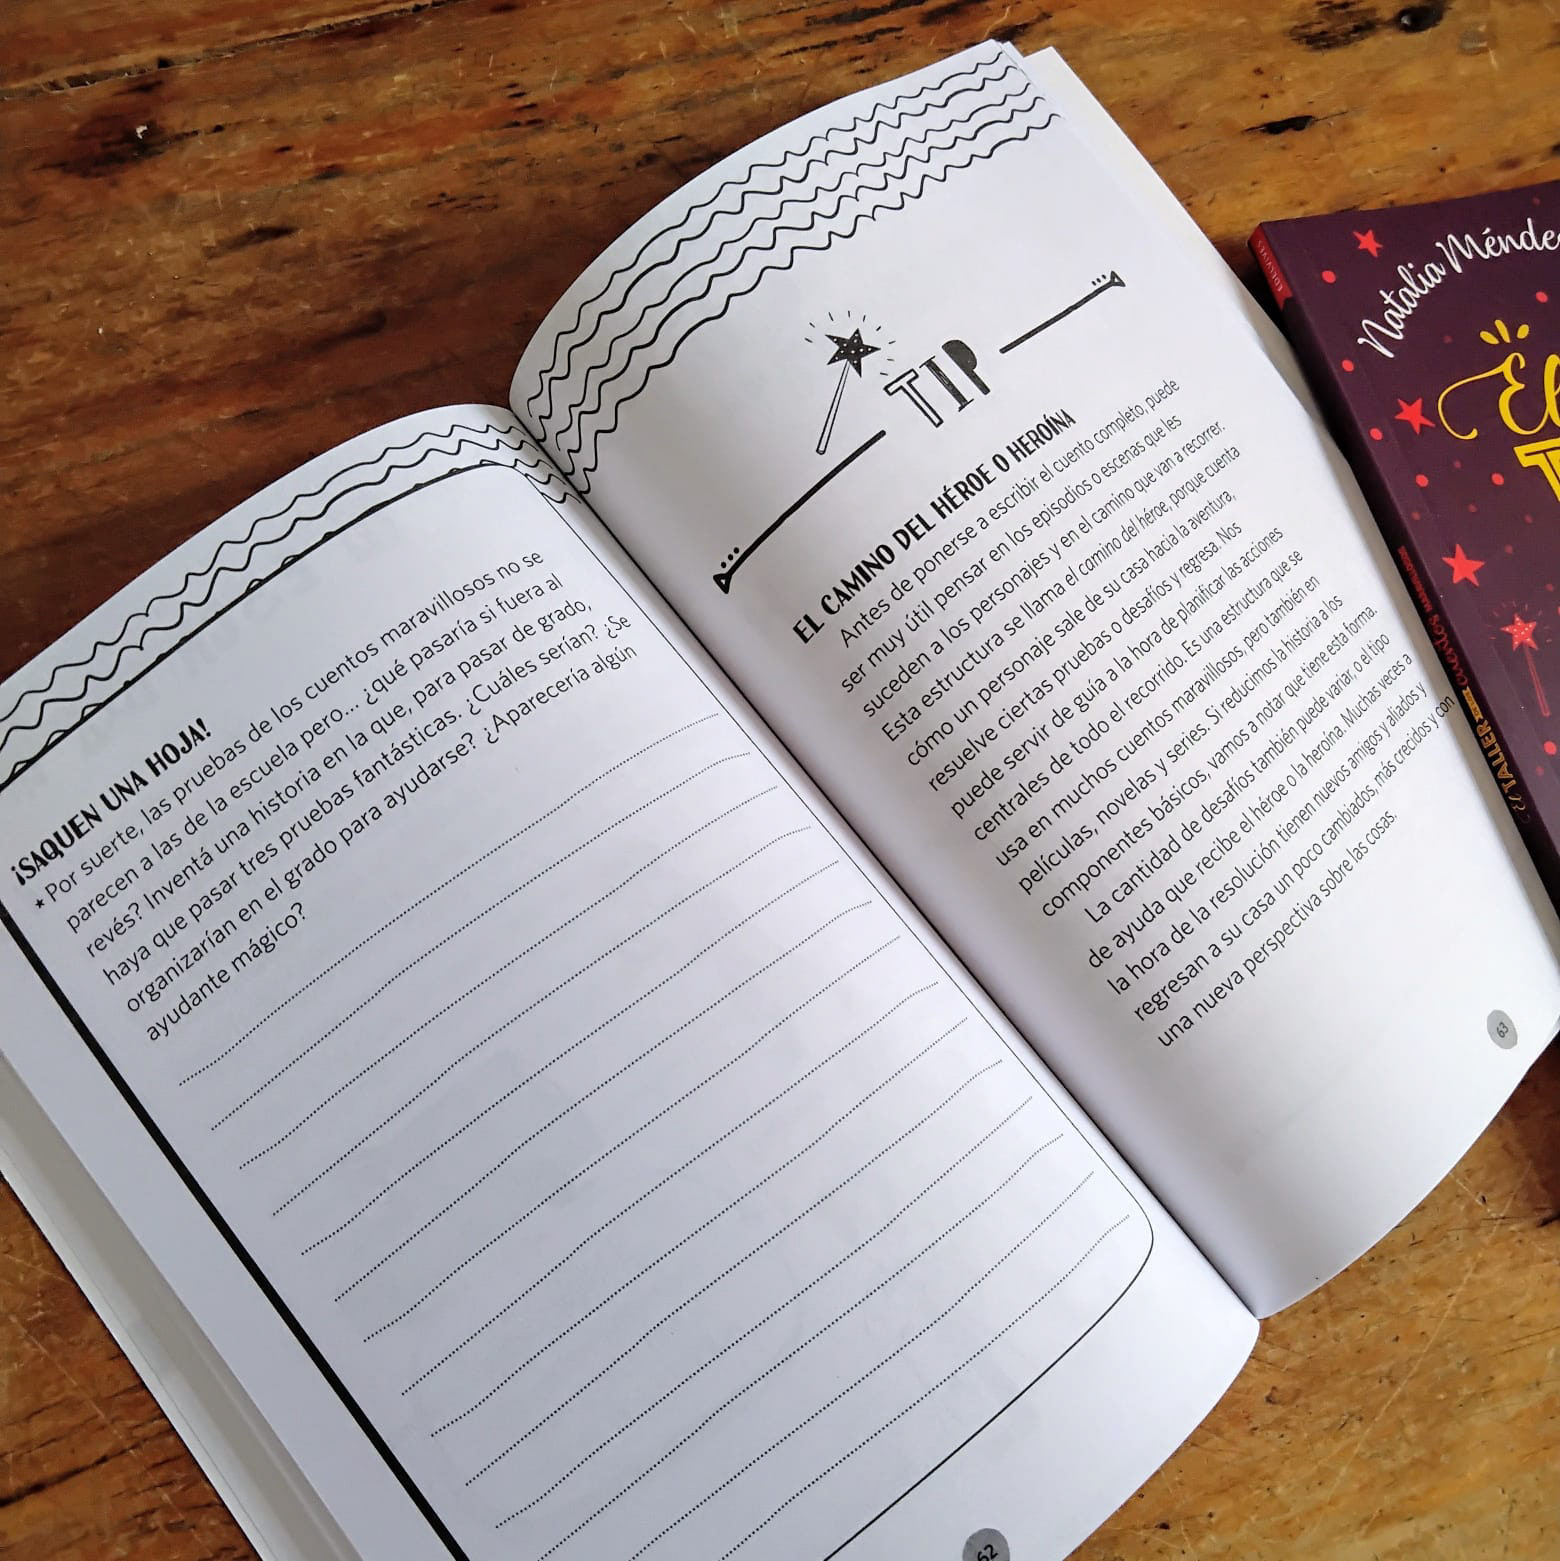 ¡SAQUEN UNA HOJA!
★ Por suerte, las pruebas de los cuentos maravillosos no se
parecen a las de la escuela pero... ¿qué pasaría si fuera al
revés? Inventá una historia en la que, para pasar de grado,
haya que pasar tres pruebas fantásticas. ¿Cuáles serían? ¿Se
organizarían en el grado para ayudarse? ¿Aparecería algún
ayudante mágico?
62
TIP
EL CAMINO DEL HÉROE O HEROÍNA
Antes de ponerse a escribir el cuento completo, puede
ser muy útil pensar en los episodios o escenas que les
suceden a los personajes y en el camino que van a recorrer.
Esta estructura se llama el camino del héroe, porque cuenta
cómo un personaje sale de su casa hacia la aventura,
resuelve ciertas pruebas o desafíos y regresa. Nos
puede servir de guía a la hora de planificar las acciones
centrales de todo el recorrido. Es una estructura que se
usa en muchos cuentos maravillosos, pero también en
películas, novelas y series. Si reducimos la historia a los
componentes básicos, vamos a notar que tiene esta forma.
La cantidad de desafíos también puede variar, o el tipo
de ayuda que recibe el héroe o la heroína. Muchas veces a
la hora de la resolución tienen nuevos amigos y aliados y
regresan a su casa un poco cambiados, más crecidos y con
una nueva perspectiva sobre las cosas.
63
EDELVIVES
Natalia Ménde
El
T
El TALLER DE CUENTOS MARAVILLOSOS